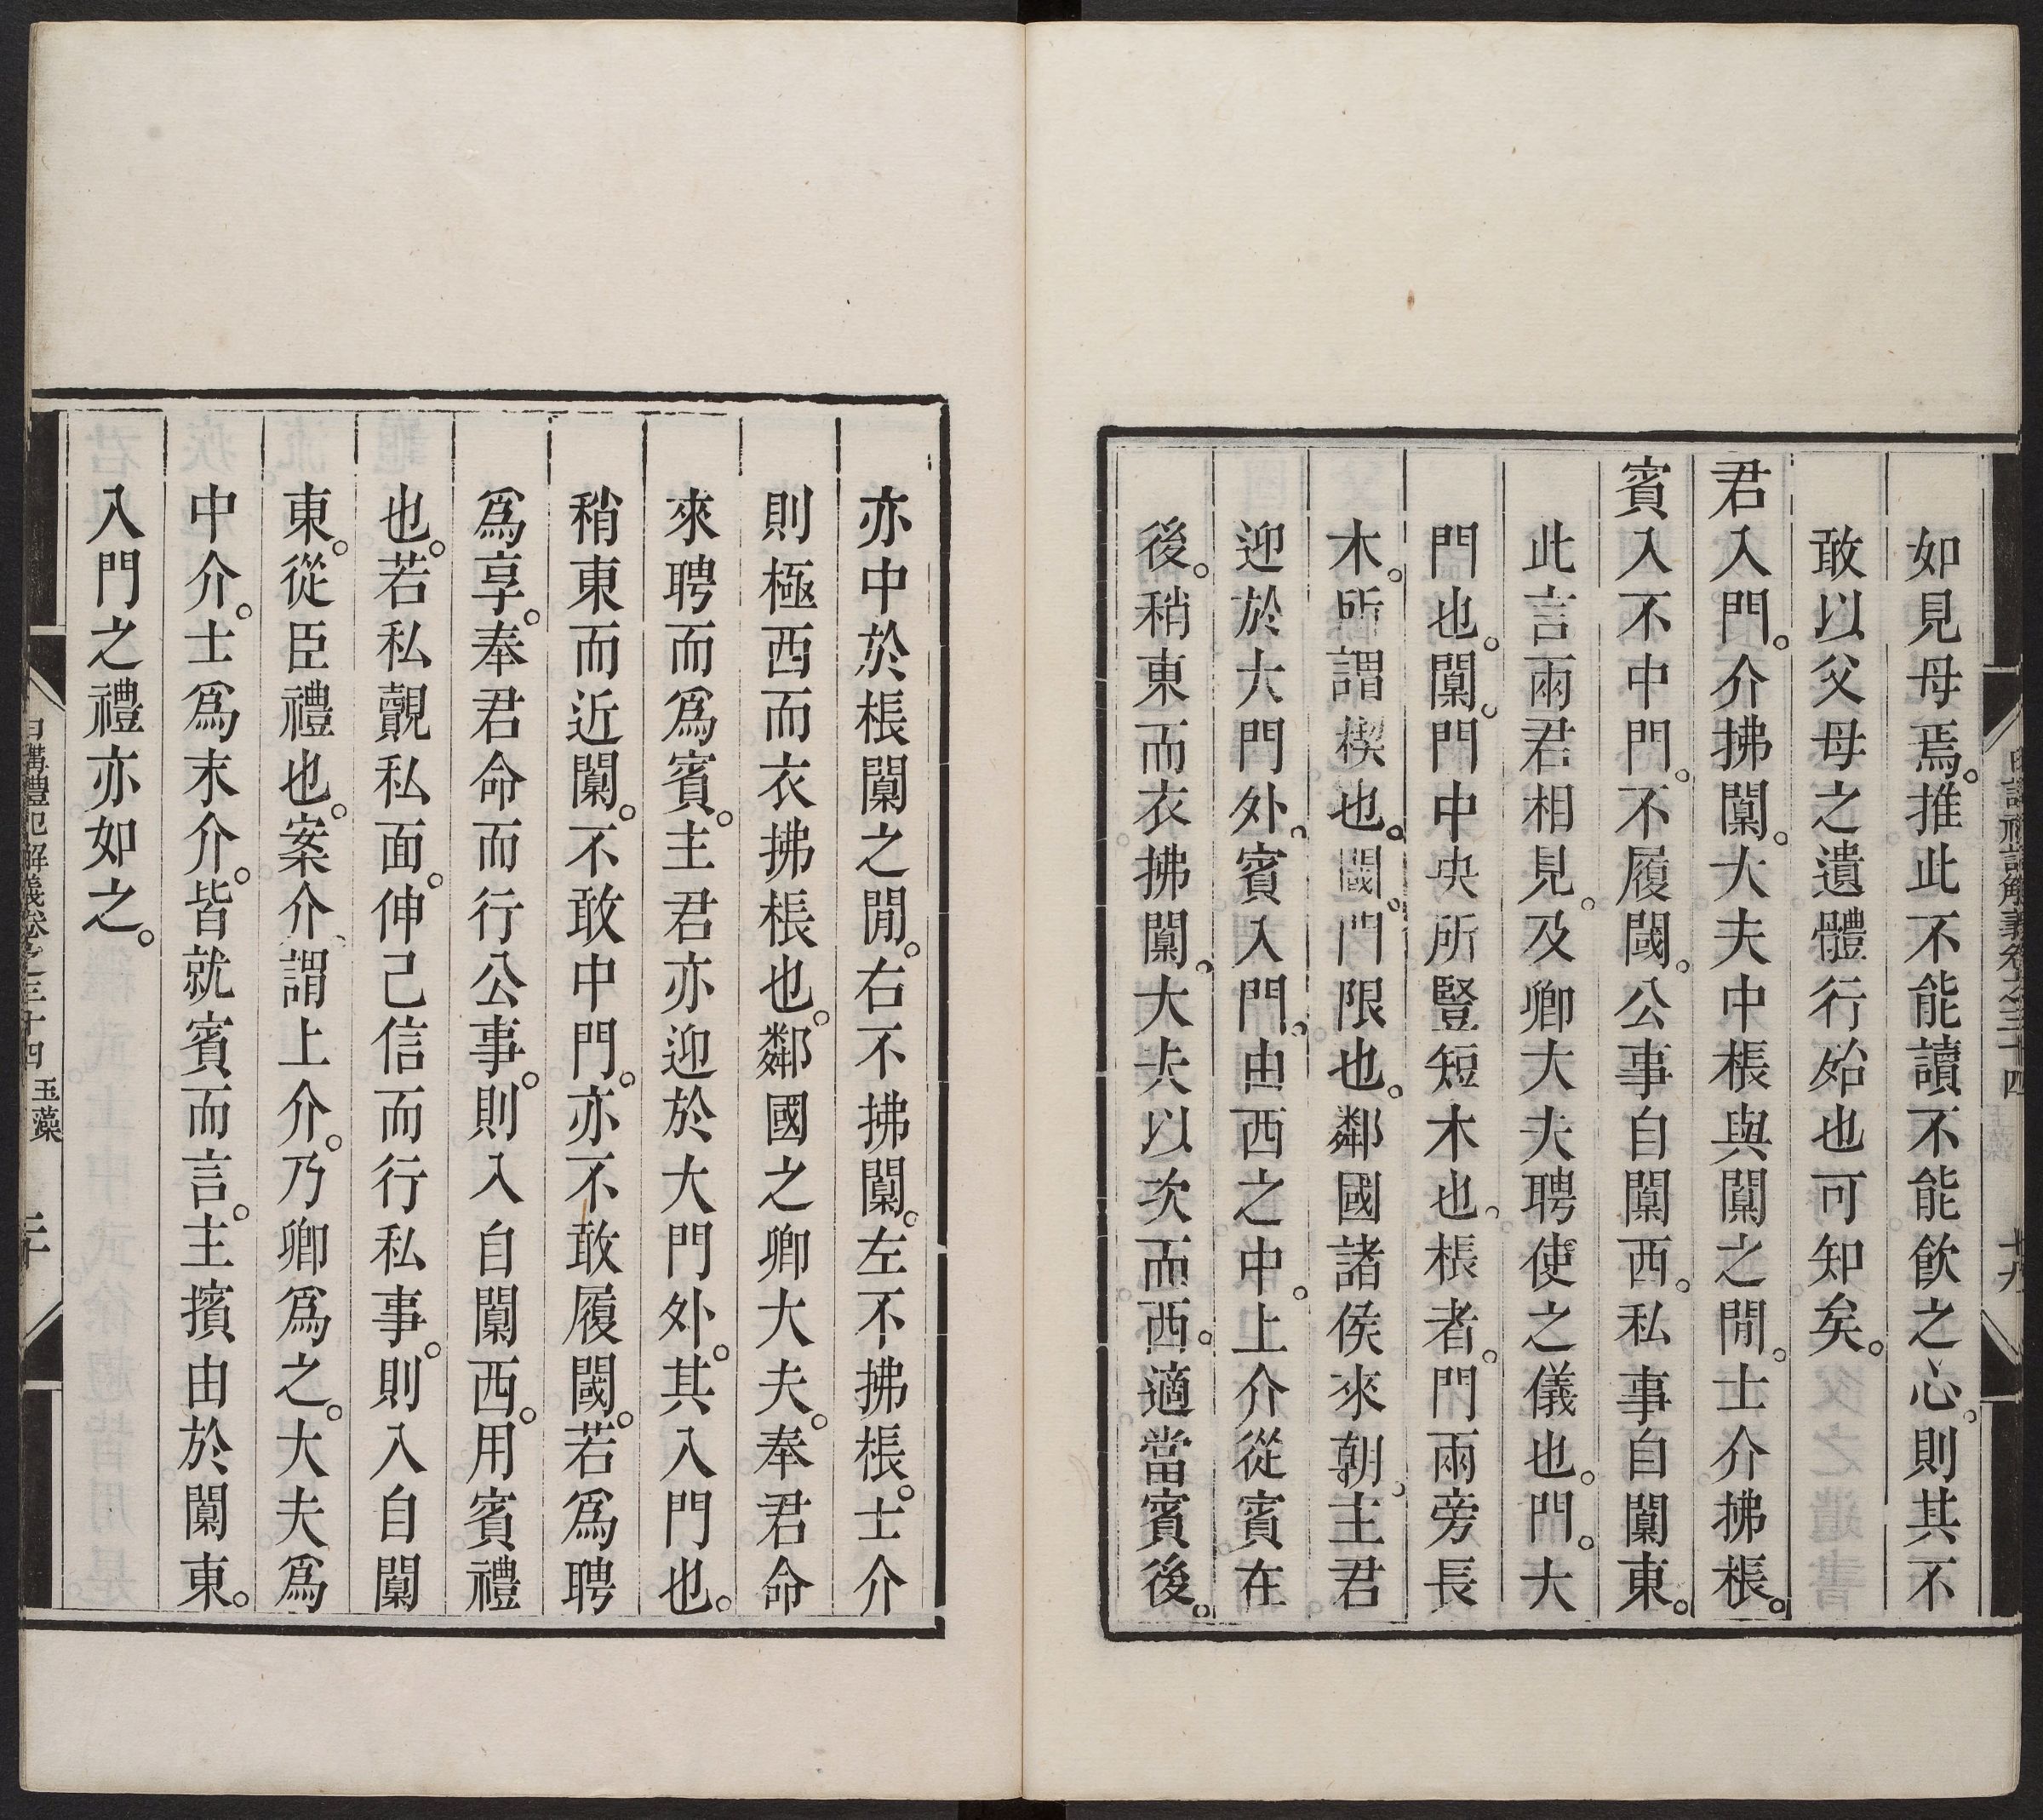 如見母焉。推此不能讀不能飲之心。則其不
敢以父母之遺體行殆也可知矣。
君入門。介拂闑。大夫中棖與闑之閒。士介拂棖。
賓入不中門。不履閾。公事自闑西。私事自闑東。
此言兩君相見。及卿大夫聘使之儀也。門。大
門也。闑。門中央所豎短木也。棖者。門兩旁長
木。所謂楔也。閾。門限也。鄰國諸侯來朝。主君
迎於大門外。賓入門。由西之中。上介從賓在
後。稍東而衣拂闑。大夫以次而西。適當賓後。
日講禮記解義卷之三十四
十九
亦中於棖闑之閒。右不拂闑。左不拂棖。士介
則極西而衣拂棖也。鄰國之卿大夫。奉君命
來聘而爲賓。主君亦迎於大門外。其入門也。
稍東而近闑。不敢中門。亦不敢履閾。若爲聘
爲享。奉君命而行公事。則入自闑西。用賓禮
也。若私覿私面。伸己信而行私事。則入自闑
東。從臣禮也。案介。謂上介。乃卿爲之。大夫爲
中介。士爲末介。皆就賓而言。主擯由於闑東。
入門之禮亦如之。
日講禮記解義卷之三十四 玉藻
二十